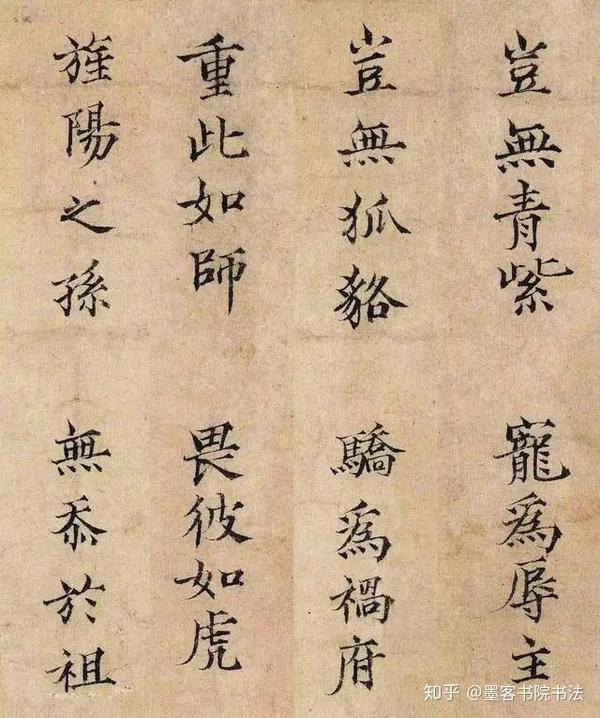 豈無青紫 寵為辱主
豈無狐貉 驕為禍府
重此如師 畏彼如虎
旌陽之孫 無忝於祖
知乎 @墨客书院书法